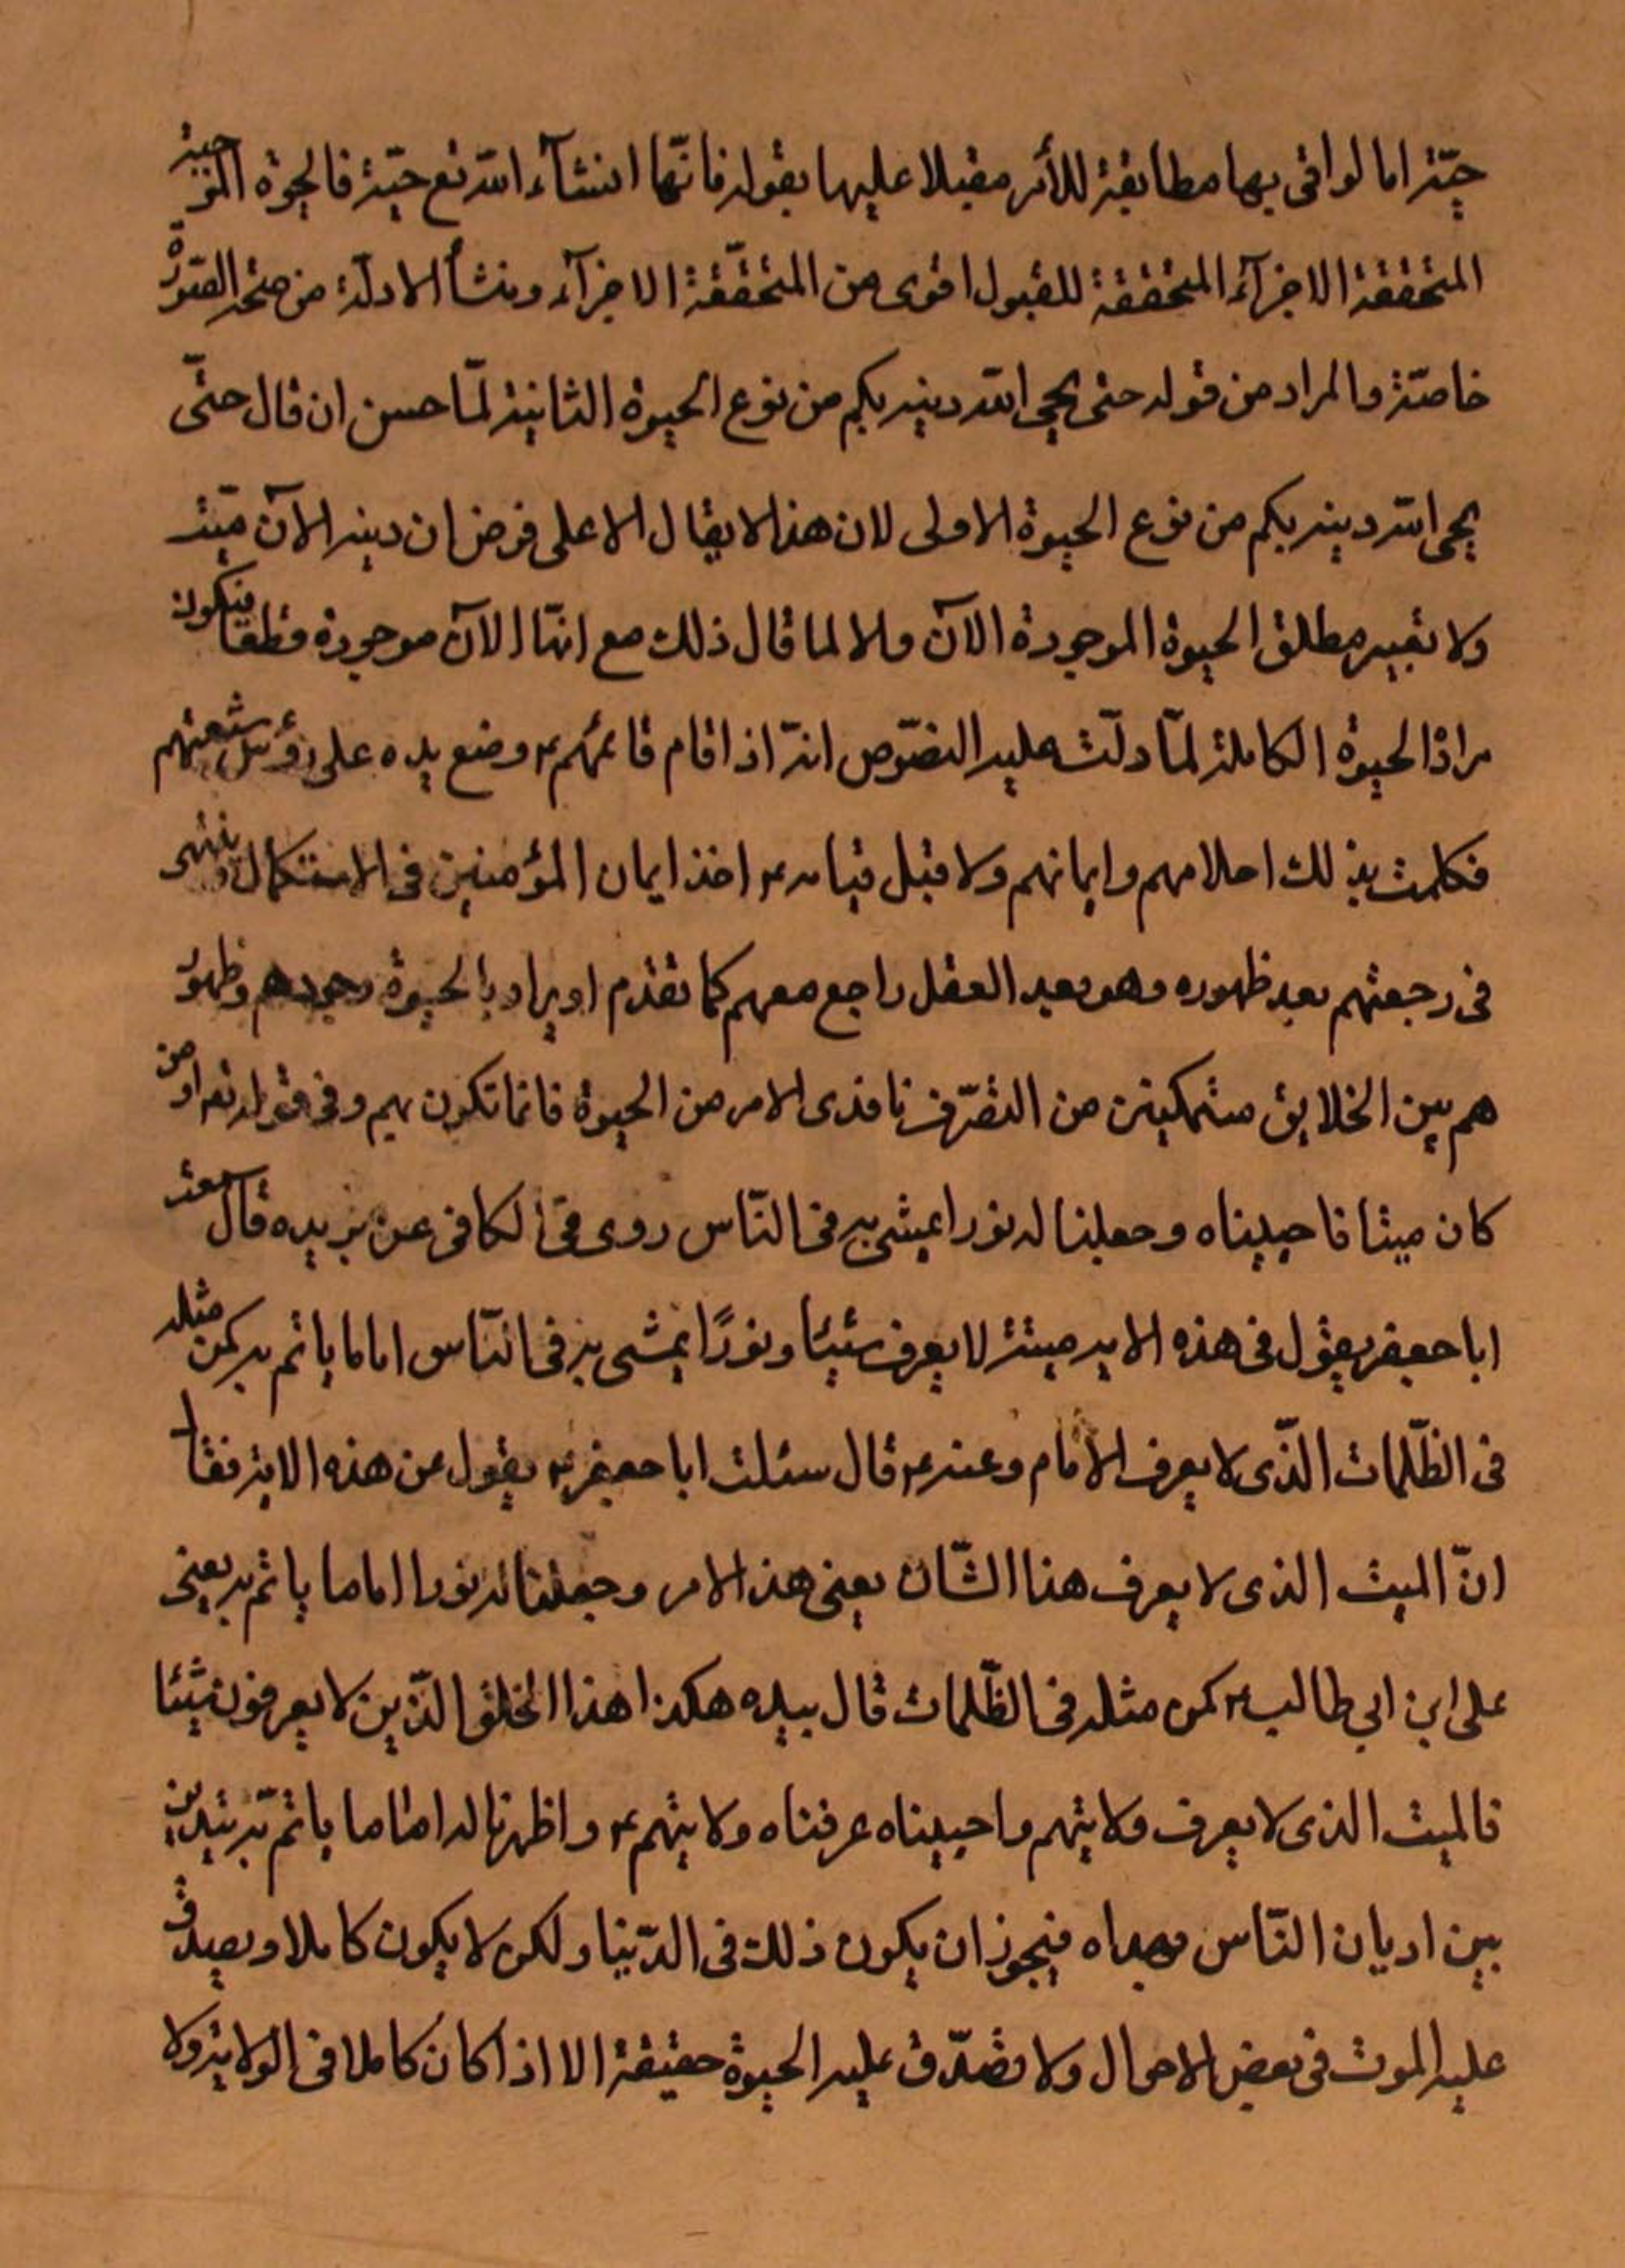 حيّة اما لو اتى بها مطابقة للأمر مقبلا عليها بقوله فانّها انشاء الله تع حيّة فالحيوة النوعية
المتحققة الاجزآء المتحققة للقبول اقوى من المتحقّقة الاجزآء ومنشأ الادلّة من صحّة الصّورة
خاصّة والمراد من قوله حتى يحيى الله دينه بكم من نوع الحيوة الثانية لمّا حسن ان قال حتّى
يحيى الله دينه بكم من نوع الحيوة الاولى لان هذا لا يقال الا على فرض ان دينه الآن ميّت
ولا تعبير مطلق الحيوة الموجودة الآن والا لما قال ذلك مع انها الآن موجودة قطعا فيكون
مراد الحيوة الكاملة لمّا دلّت عليه النصّوص انه اذا قام قائمهم ع وضع يده على رؤس شيعتهم
فكلمت بذلك احلامهم وايمانهم ولا قبل قيامه ع اخذ ايمان المؤمنين فى الاستكمال وينتهى
فى رجعتهم بعد ظهوره وهو بعيد العقل راجع معهم كما تقدم او يراد بالحيوة وجودهم وظهور
هم بين الخلايق متمكينن من التصّرف نافذى الامر من الحيوة فانما تكون بهم وفى قوله تع او من
كان ميتا فاحييناه وجعلنا له نورا يمشى به فى النّاس روى فى الكافى عن بريده قال سمعت
ابا جعفر يقول فى هذه الايه ميتة لا يعرف شيئا ونورًا يمشى به فى النّاس اماما ياتم به كمن مثله
فى الظّلمات الّذى لا يعرف الامام وعنه ع قال سئلت ابا جعفر ع يقول عن هذه الاية فقال
انّ الميت الذى لا يعرف هذا الشّان يعنى هذ الامر وجعلنا له نورا اماما ياتم به يعنى
على ابن ابي طالب ع كمن مثله فى الظّلمات قال بيده هكذا هذا الخلق الّذين لا يعرفون شيئا
فالميت الذى لا يعرف ولايتهم واحييناه عرفناه ولايتهم ع واظهرنا له اماما ياتم به يتدين
بين اديان النّاس وبهداه فيجوز ان يكون ذلك فى الدّنيا ولكن لا يكون كاملا ويصدق
عليه الموت فى بعض الاحوال ولا تصّدق عليه الحيوة حقيقة الا اذا كان كاملا فى الولاية ولا